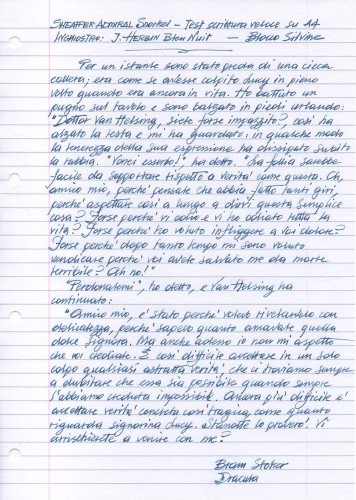 SHEAFFER ADMIRAL Snorkel - Test scrittura veloce su A4
INCHIOSTRO: J. HERBIN Bleu Nuit — Blocco Silvine
Per un istante sono stato preda di una cieca
collera; era come se avesse colpito Lucy in pieno
volto quando era ancora in vita. Ho battuto un
pugno sul tavolo e sono balzato in piedi urlando:
"Dottor Van Helsing, siete forse impazzito?" così ha
alzato la testa e mi ha guardato: in qualche modo
la tenerezza della sua espressione ha dissipato subito
la rabbia. "Vorrei esserlo!", ha detto. "La follia sarebbe
facile da sopportare rispetto a verità come questa. Oh,
amico mio, perché pensate che abbia fatto tanti giri,
perché aspettare così a lungo a dirvi questa semplice
cosa? Forse perché vi odio e vi ho odiato tutta la
vita? Forse perché ho voluto infliggere a voi dolore?
Forse perché dopo tanto tempo mi sono voluto
vendicare perché voi avete salvato me da morte
terribile? Oh no!"
"Perdonatemi", ho detto, e Van Helsing ha
continuato:
"Amico mio, è stato perché volevo rivelarvelo con
delicatezza, perché sapevo quanto amavate quella
dolce signora. Ma anche adesso io non mi aspetto
che voi crediate. È così difficile accettare in un solo
colpo qualsiasi astratta verità, che ci troviamo sempre
a dubitare che essa sia possibile quando sempre
l'abbiamo creduta impossibile. Ancora più difficile è
accettare verità concreta così tragica, come quanto
riguarda signorina Lucy. Stanotte lo proverò. Vi
arrischiate a venire con me?
Bram Stoker
Dracula